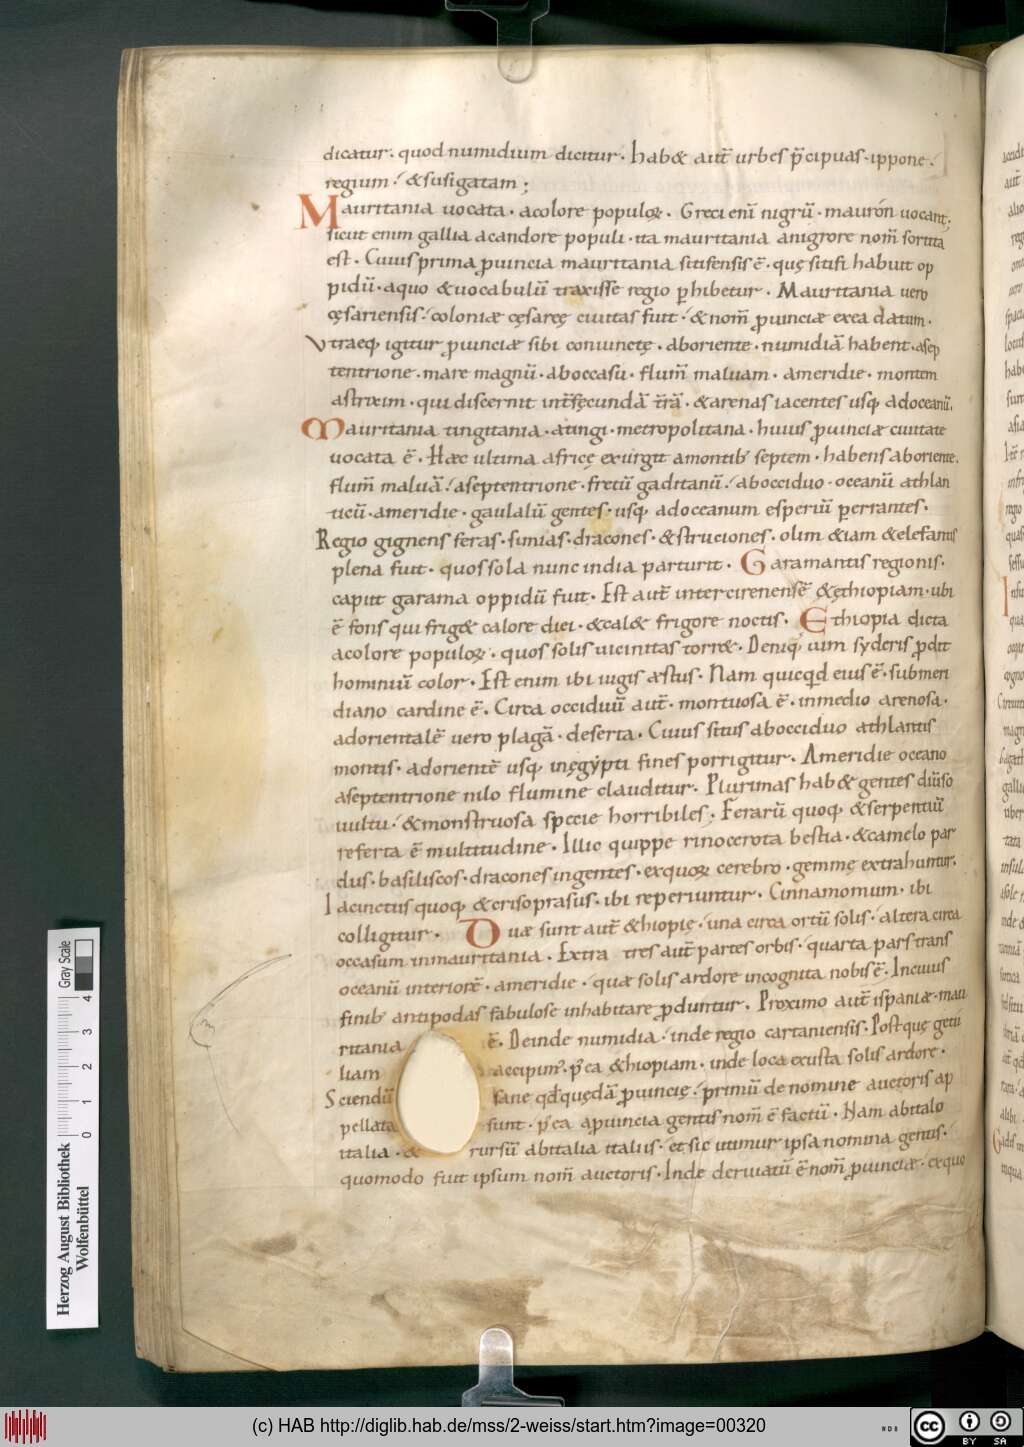 dicatur. quod numidium dicitur. hab& aut̄ urbes p̄cipuas. ippone.
regium. & susigatam;
Mauritania uocata. a colore populoꝝ. Greci eni nigrū. mauron uocant.
sicut enim gallia a candore populi. ita mauritania a nigrore nom̄ sortita
est. Cuius prima ꝓuincia mauritania sitifensis ē. quę sitifi habuit op
pidū. a quo & uocabulū traxisse regio ꝑhibetur. Mauritania uero
cęsariensis. coloniæ cęsareę ciuitas fuit. & nom̄ ꝓuinciæ ex ea datum.
Vtraeq; igitur ꝓuinciæ sibi coniunctę. ab oriente. numidiā habent. a sep
tentrione. mare magnū. ab occasu. flum̄ maluam. a meridie. montem
astrixim. qui discernit int̄ fęcundā t̄rā. & arenas iacentes usq; ad oceanū.
Mauritania tingitania. a tingi. metropolitana. huius ꝓuinciæ ciuitate
uocata ē. Hæc ultima africę exurgit a montib; septem. habens ab oriente.
flum̄ maluā. a septentrione. fretū gaditanū. ab occiduo. oceanū athlan
ticū. a meridie. gaulalū gentes. usq; ad oceanum esperiū ꝑerrantes.
Regio gignens feras. simias. dracones. & struciones. olim &iam & elefantis
plena fuit. quos sola nunc india parturit. Garamantis regionis.
caput garama oppidū fuit. Est aut̄ inter cirenensē & ęthiopiam. ubi
ē fons qui frig& calore diei. & cal& frigore noctis. Ethiopia dicta
a colore populoꝝ. quos solis uicinitas torr&. Deniq; uim syderis ꝓdit
hominiū color. Est enim ibi iugis æstus. Nam quicqd eius ē. sub meri
diano cardine ē. Circa occiduū aut̄. montuosa ē. in medio arenosa.
ad orientalē uero plagā. deserta. Cuius situs ab occiduo athlantis
montis. ad orientē usq; in ęgypti fines porrigitur. A meridie oceano
a septentrione nilo flumine clauditur. Plurimas hab& gentes diuso
uultu. & monstruosa specie horribiles. Ferarū quoq; & serpentiū
referta ē multitudine. Illic quippe rinocerota bestia. & camelo par
dus. basiliscos. dracones ingentes. ex quoꝝ cerebro. gemmę extrahuntur.
Iacinctus quoq; & crisoprasus. ibi reperiuntur. Cinnamomum. ibi
colligitur. Duæ sunt aut̄ &hiopię. una circa ortū solis. altera circa
occasum in mauritania. Extra tres aut̄ partes orbis. quarta pars trans
oceanū interiorē. a meridie. quæ solis ardore incognita nobis ē. In cuius
finib; antipodas fabulose inhabitare ꝓduntur. Proximo aut̄ ispaniæ. mau
ritania ē. Deinde numidia. inde regio cartaniensis. Post quę getu
liam accipim;. p̄ ea &hiopiam. inde loca exusta solis ardore.
Sciendū sane qđ quędā ꝓuincię. primū de nomine auctoris ap
pellata sunt. p̄ ea a ꝓuincia gentis nom̄ ē factū. Nam ab italo
italia. & rursū ab italia italus. et sic utimur ipsa nomina gentis.
quomodo fuit ipsum nom̄ auctoris. Inde deriuatū ē nom̄ ꝓuinciæ. ex quo
Herzog August Bibliothek
Wolfenbüttel
0 1 2 3 4
Gray Scale
(c) HAB http://diglib.hab.de/mss/2-weiss/start.htm?image=00320
cc BY SA